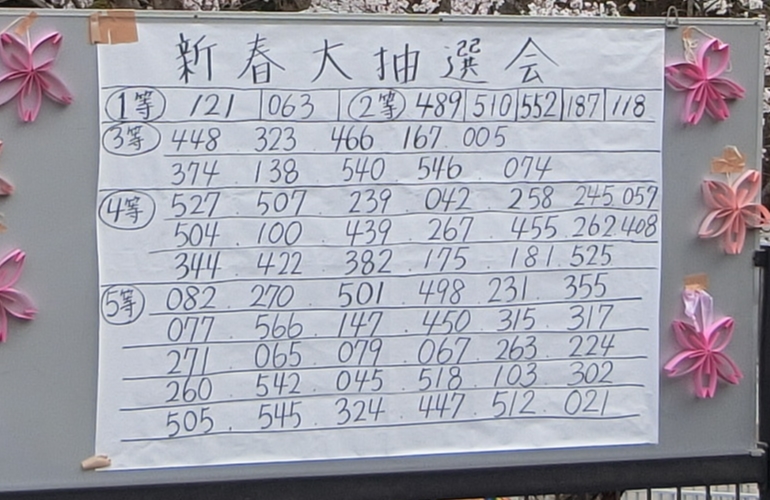 新春大抽選会
1等 121 063 2等 489 510 552 187 118
3等 448 323 466 167 005
374 138 540 546 074
4等 527 . 507 . 239 . 042 . 258 . 245 057
504 . 100 . 439 . 267 . 455 262 408
344 . 422 . 382 . 175 . 181 . 525
5等 082 . 270 . 501 . 498 231 . 355
077 . 566 . 147 . 450 . 315 . 317
271 . 065 . 079 . 067 . 263 . 224
260 . 542 . 045 . 518 . 103 . 302
505 . 545 . 324 . 447 . 512 . 021